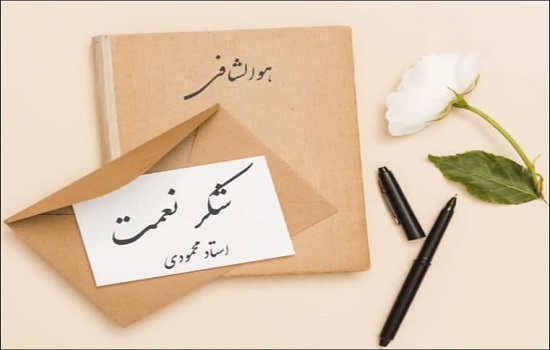 هوالشافی
شکر نعمت
استاد محمودی